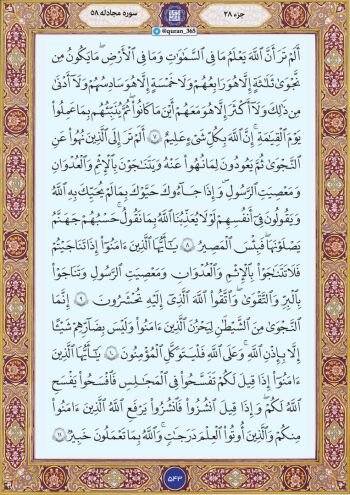 جزء ۲۸
سوره مجادله ۵۸
@quran_365
أَلَمْ تَرَ أَنَّ اللَّهَ يَعْلَمُ مَا فِي السَّمَاوَاتِ وَمَا فِي الْأَرْضِ ۖ مَا يَكُونُ مِن
نَّجْوَىٰ ثَلَاثَةٍ إِلَّا هُوَ رَابِعُهُمْ وَلَا خَمْسَةٍ إِلَّا هُوَ سَادِسُهُمْ وَلَا أَدْنَىٰ
مِن ذَٰلِكَ وَلَا أَكْثَرَ إِلَّا هُوَ مَعَهُمْ أَيْنَ مَا كَانُوا ۖ ثُمَّ يُنَبِّئُهُم بِمَا عَمِلُوا
يَوْمَ الْقِيَامَةِ ۚ إِنَّ اللَّهَ بِكُلِّ شَيْءٍ عَلِيمٌ ۷ أَلَمْ تَرَ إِلَى الَّذِينَ نُهُوا عَنِ
النَّجْوَىٰ ثُمَّ يَعُودُونَ لِمَا نُهُوا عَنْهُ وَيَتَنَاجَوْنَ بِالْإِثْمِ وَالْعُدْوَانِ
وَمَعْصِيَتِ الرَّسُولِ وَإِذَا جَاءُوكَ حَيَّوْكَ بِمَا لَمْ يُحَيِّكَ بِهِ اللَّهُ
وَيَقُولُونَ فِي أَنفُسِهِمْ لَوْلَا يُعَذِّبُنَا اللَّهُ بِمَا نَقُولُ ۚ حَسْبُهُمْ جَهَنَّمُ
يَصْلَوْنَهَا ۖ فَبِئْسَ الْمَصِيرُ ۸ يَا أَيُّهَا الَّذِينَ ءَامَنُوا إِذَا تَنَاجَيْتُمْ
فَلَا تَتَنَاجَوْا بِالْإِثْمِ وَالْعُدْوَانِ وَمَعْصِيَتِ الرَّسُولِ وَتَنَاجَوْا
بِالْبِرِّ وَالتَّقْوَىٰ ۖ وَاتَّقُوا اللَّهَ الَّذِي إِلَيْهِ تُحْشَرُونَ ۹ إِنَّمَا
النَّجْوَىٰ مِنَ الشَّيْطَانِ لِيَحْزُنَ الَّذِينَ ءَامَنُوا وَلَيْسَ بِضَارِّهِمْ شَيْئًا
إِلَّا بِإِذْنِ اللَّهِ ۚ وَعَلَى اللَّهِ فَلْيَتَوَكَّلِ الْمُؤْمِنُونَ ۱۰ يَا أَيُّهَا الَّذِينَ
ءَامَنُوا إِذَا قِيلَ لَكُمْ تَفَسَّحُوا فِي الْمَجَالِسِ فَافْسَحُوا يَفْسَحِ
اللَّهُ لَكُمْ ۖ وَإِذَا قِيلَ انشُزُوا فَانشُزُوا يَرْفَعِ اللَّهُ الَّذِينَ ءَامَنُوا
مِنكُمْ وَالَّذِينَ أُوتُوا الْعِلْمَ دَرَجَاتٍ ۚ وَاللَّهُ بِمَا تَعْمَلُونَ خَبِيرٌ ۱۱
۵۴۳